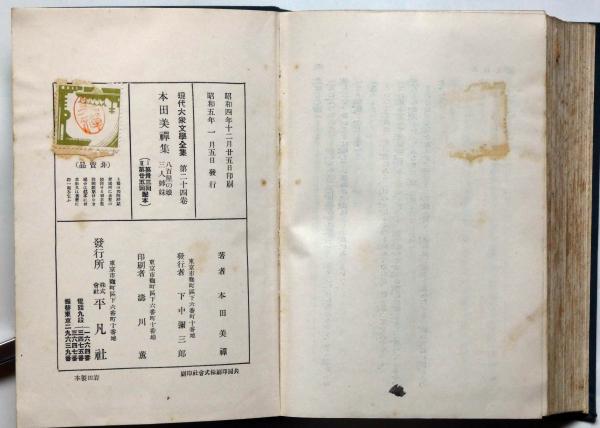 昭和四年十二月廿五日印刷
昭和五年一月五日發行
現代大衆文學全集 第二十四卷
本田美禪集
八百屋の娘
三人姉妹
(非賣品)
著者 本田美禪
東京市麹町區下六番町十番地
發行者 下中彌三郎
東京市麹町區下六番町十番地
印刷者 濤川薫
東京市麹町區下六番町十番地
發行所 株式會社 平凡社
電話九段
振替東京二九六三九番
岩田製本
共同印刷株式會社印刷